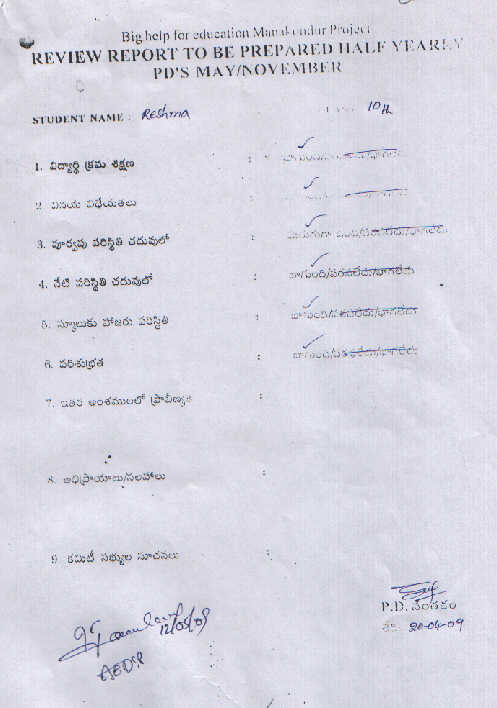 Big help for education Manakondur Project
REVIEW REPORT TO BE PREPARED HALF YEARLY
PD'S MAY/NOVEMBER
STUDENT NAME : Reshma 10th
1. విద్యార్థి క్రమ శిక్షణ :
2. వినయ విధేయతలు
3. పూర్వపు పరిస్థితి చదువులో :
4. నేటి పరిస్థితి చదువులో : బాగుంది/పరవాలేదు/బాగాలేదు
5. స్కూలుకు హాజరు పరిస్థితి : బాగుంది/పరవాలేదు/బాగాలేదు
6. పరిశుభ్రత : బాగుంది/పరవాలేదు/బాగాలేదు
7. ఇతర అంశములలో ప్రావీణ్యత :
8. అభిప్రాయాలు/సలహాలు :
9. కమిటీ సభ్యుల సూచనలు :
P.D. సంతకం
20-04-09
12/05/09